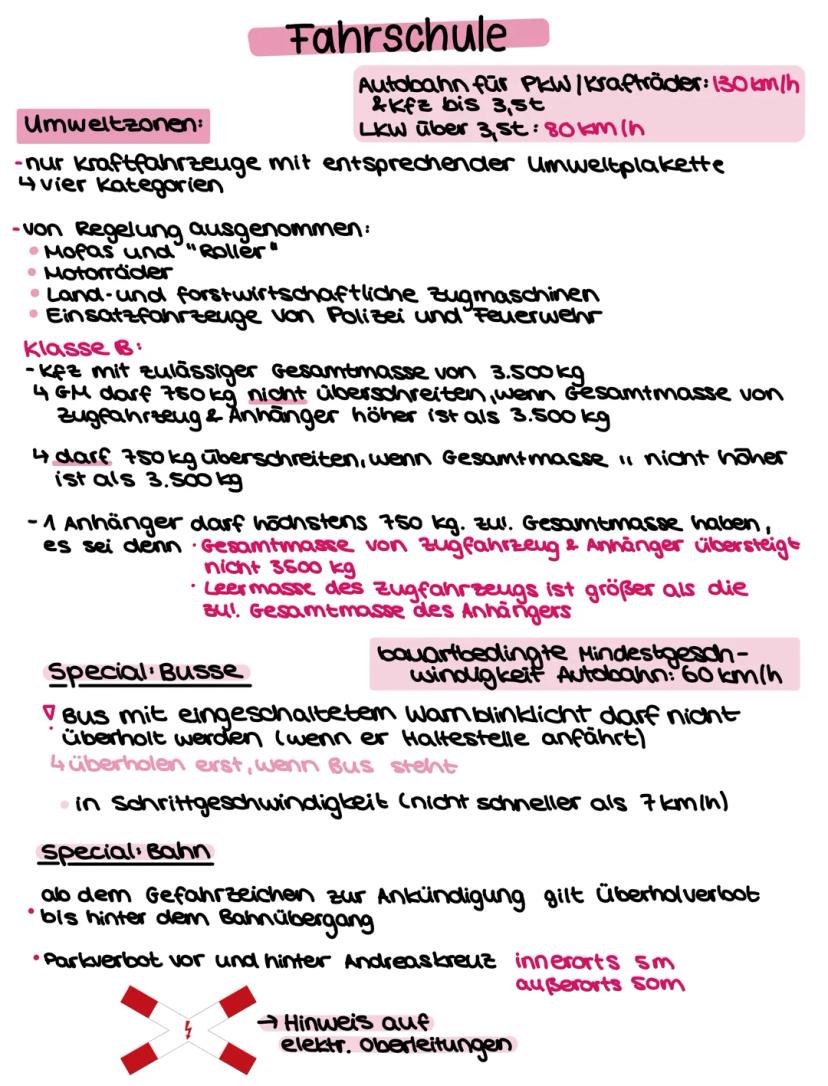 Fahrschule
Autobahn für PKW/Krafträder: 130 km/h
& Kfz bis 3,5t
LKW über 3,5t: 80 km/h
Umweltzonen:
- nur Kraftfahrzeuge mit entsprechender Umweltplakette
↳ vier Kategorien
- von Regelung ausgenommen:
• Mofas und "Roller"
• Motorräder
• Land- und forstwirtschaftliche Zugmaschinen
• Einsatzfahrzeuge von Polizei und Feuerwehr
Klasse B:
- Kfz mit zulässiger Gesamtmasse von 3.500 kg
↳ GM darf 750 kg nicht überschreiten, wenn Gesamtmasse von
Zugfahrzeug & Anhänger höher ist als 3.500 kg
↳ darf 750 kg überschreiten, wenn Gesamtmasse " nicht höher
ist als 3.500 kg
- 1 Anhänger darf höchstens 750 kg. zul. Gesamtmasse haben,
es sei denn · Gesamtmasse von Zugfahrzeug & Anhänger übersteigt
nicht 3500 kg
· Leermasse des Zugfahrzeugs ist größer als die
zul. Gesamtmasse des Anhängers
bauartbedingte Mindestgesch-
windigkeit Autobahn: 60 km/h
Special: Busse
Bus mit eingeschaltetem Warnblinklicht darf nicht
überholt werden (wenn er Haltestelle anfährt)
↳ überholen erst, wenn Bus steht
• in Schrittgeschwindigkeit (nicht schneller als 7 km/h)
Special: Bahn
ab dem Gefahrzeichen zur Ankündigung gilt Überholverbot
• bis hinter dem Bahnübergang
• Parkverbot vor und hinter Andreaskreuz innerorts 5m
außerorts 50m
→ Hinweis auf
elektr. Oberleitungen